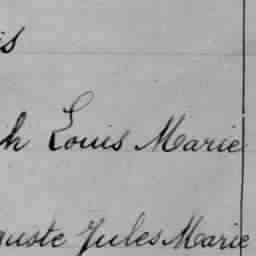 is
h Louis Marie
guste Jules Marie